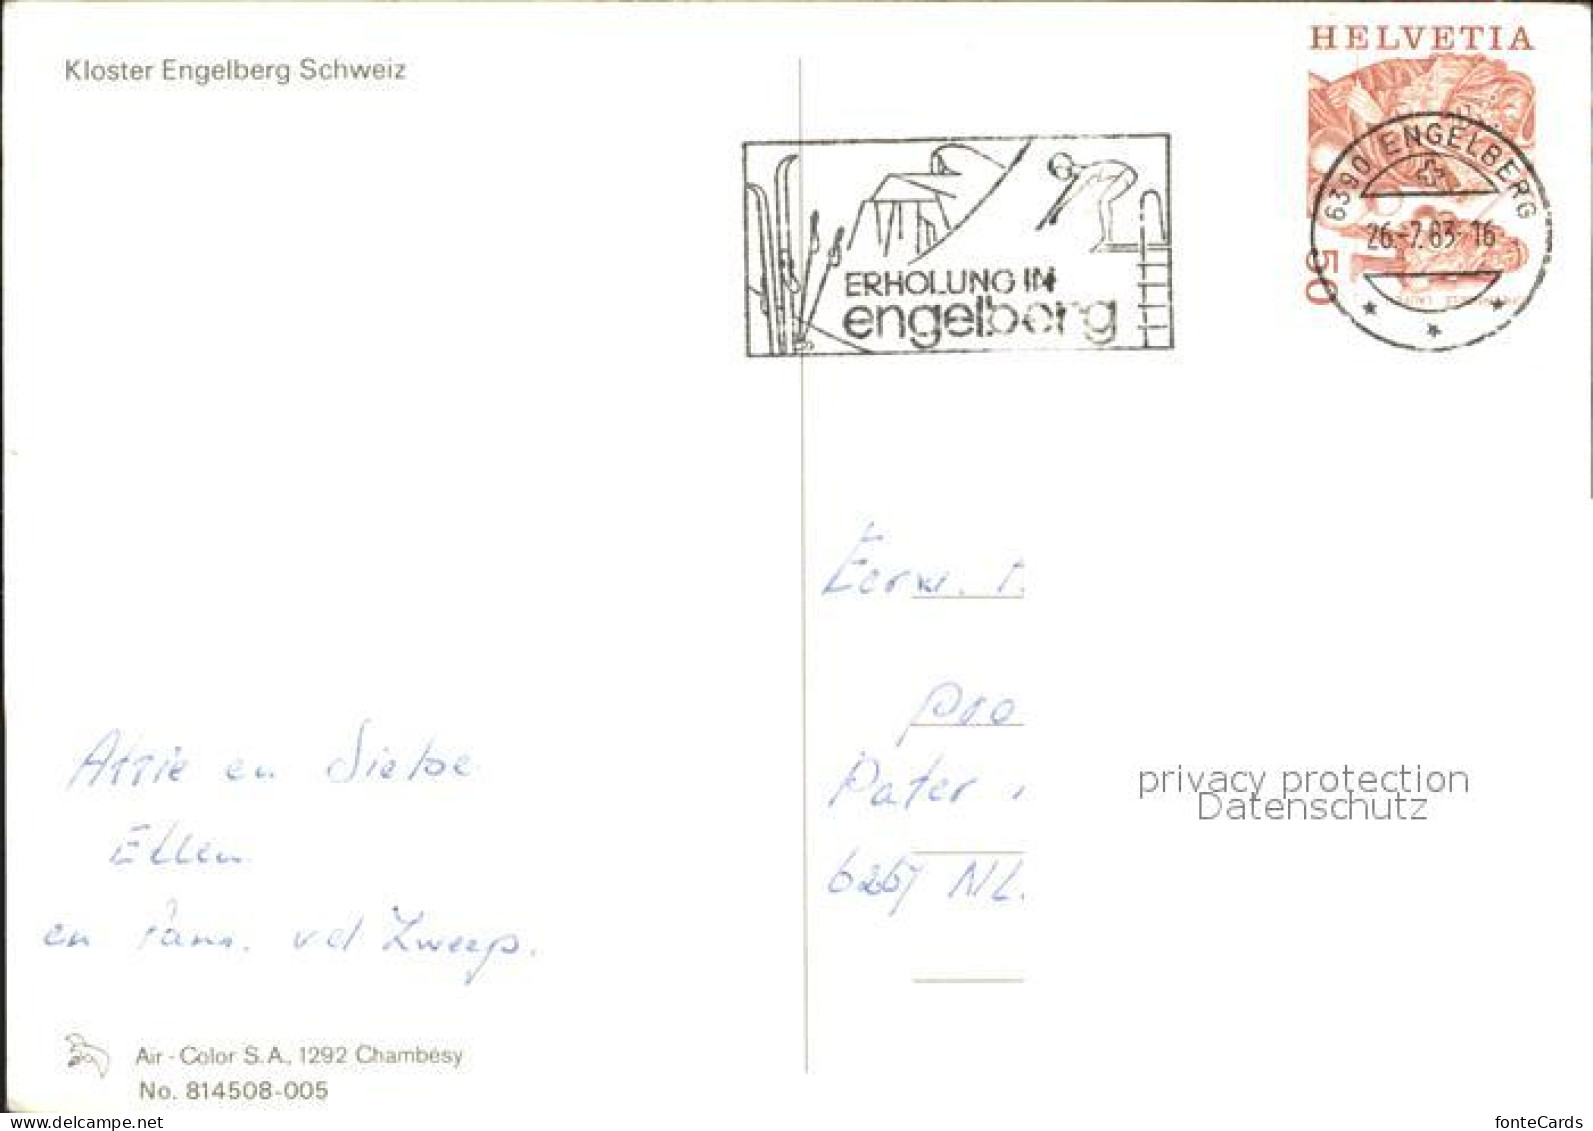 Kloster Engelberg Schweiz
HELVETIA
50
6390 ENGELBERG
26.-7.83-16
ERHOLUNG IN
engelberg
Eerw. P.
pro
Pater
6267 NL.
privacy protection
Datenschutz
Attie en Sietse
Ellen
en Fam. vd Zweep.
Air-Color S.A., 1292 Chambésy
No. 814508-005
www.delcampe.net
fonteCards